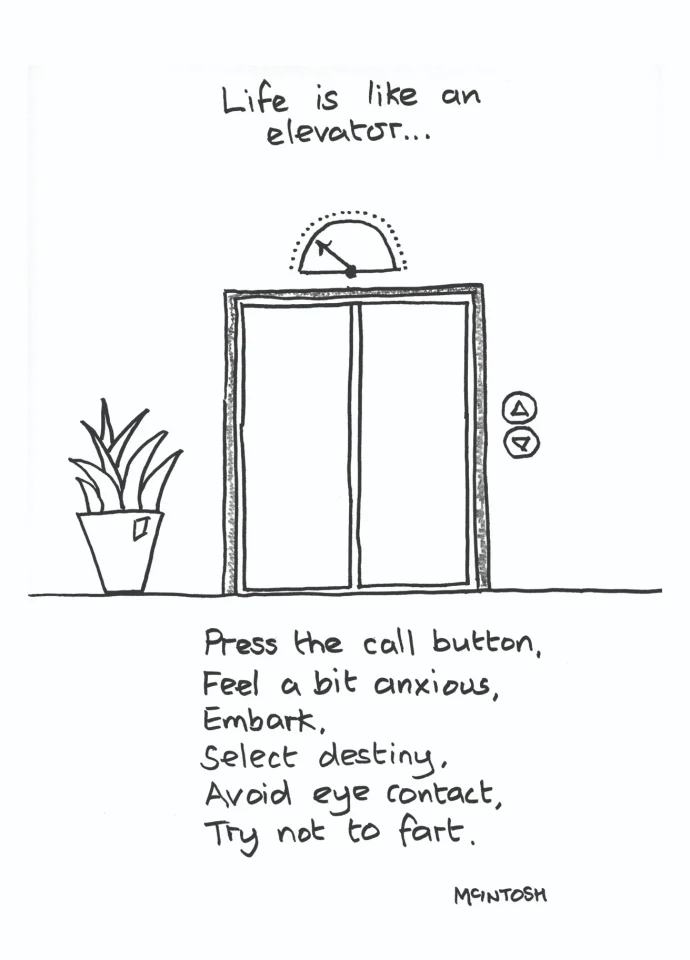 Life is like an
elevator...
Press the call button,
Feel a bit anxious,
Embark,
Select destiny,
Avoid eye contact,
Try not to fart.
McINTOSH